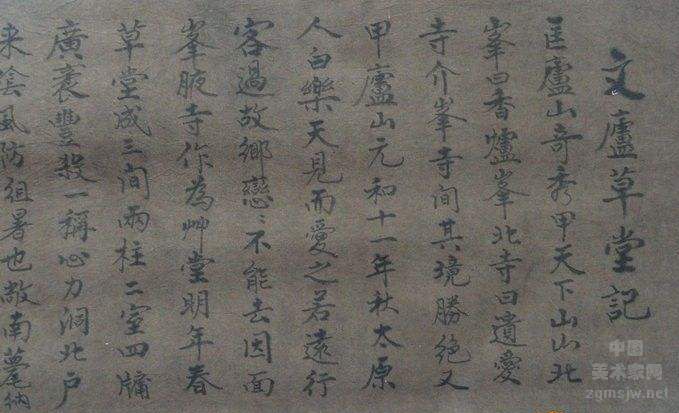 文廬草堂記
匡廬山奇秀甲天下山山北
峯曰香爐峯北寺曰遺愛
寺介峯寺間其境勝絕又
甲廬山元和十一年秋太原
人白樂天見而愛之若遠行
客過故鄉戀〻不能去因面
峯腋寺作為艸堂明年春
草堂成三间兩柱二室四牖
廣袤豐殺一稱心力洞北户
来陰風防徂暑也敞南甍納
中国
美术家网
zgmsjw.net